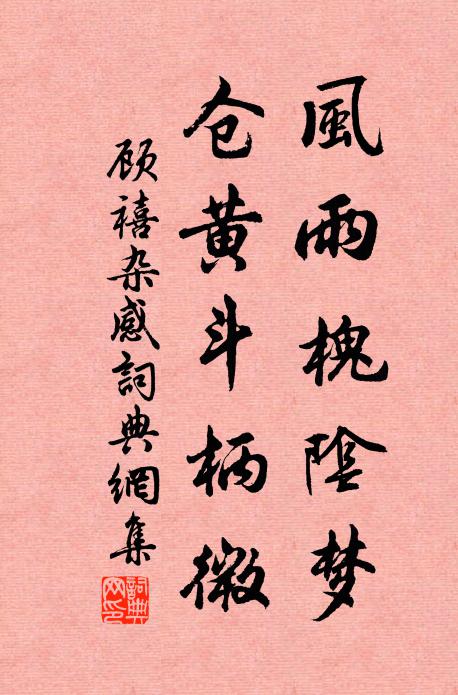 風雨槐陰梦
仓黄斗柄微
顾禧杂感詞典網集
詞典網印